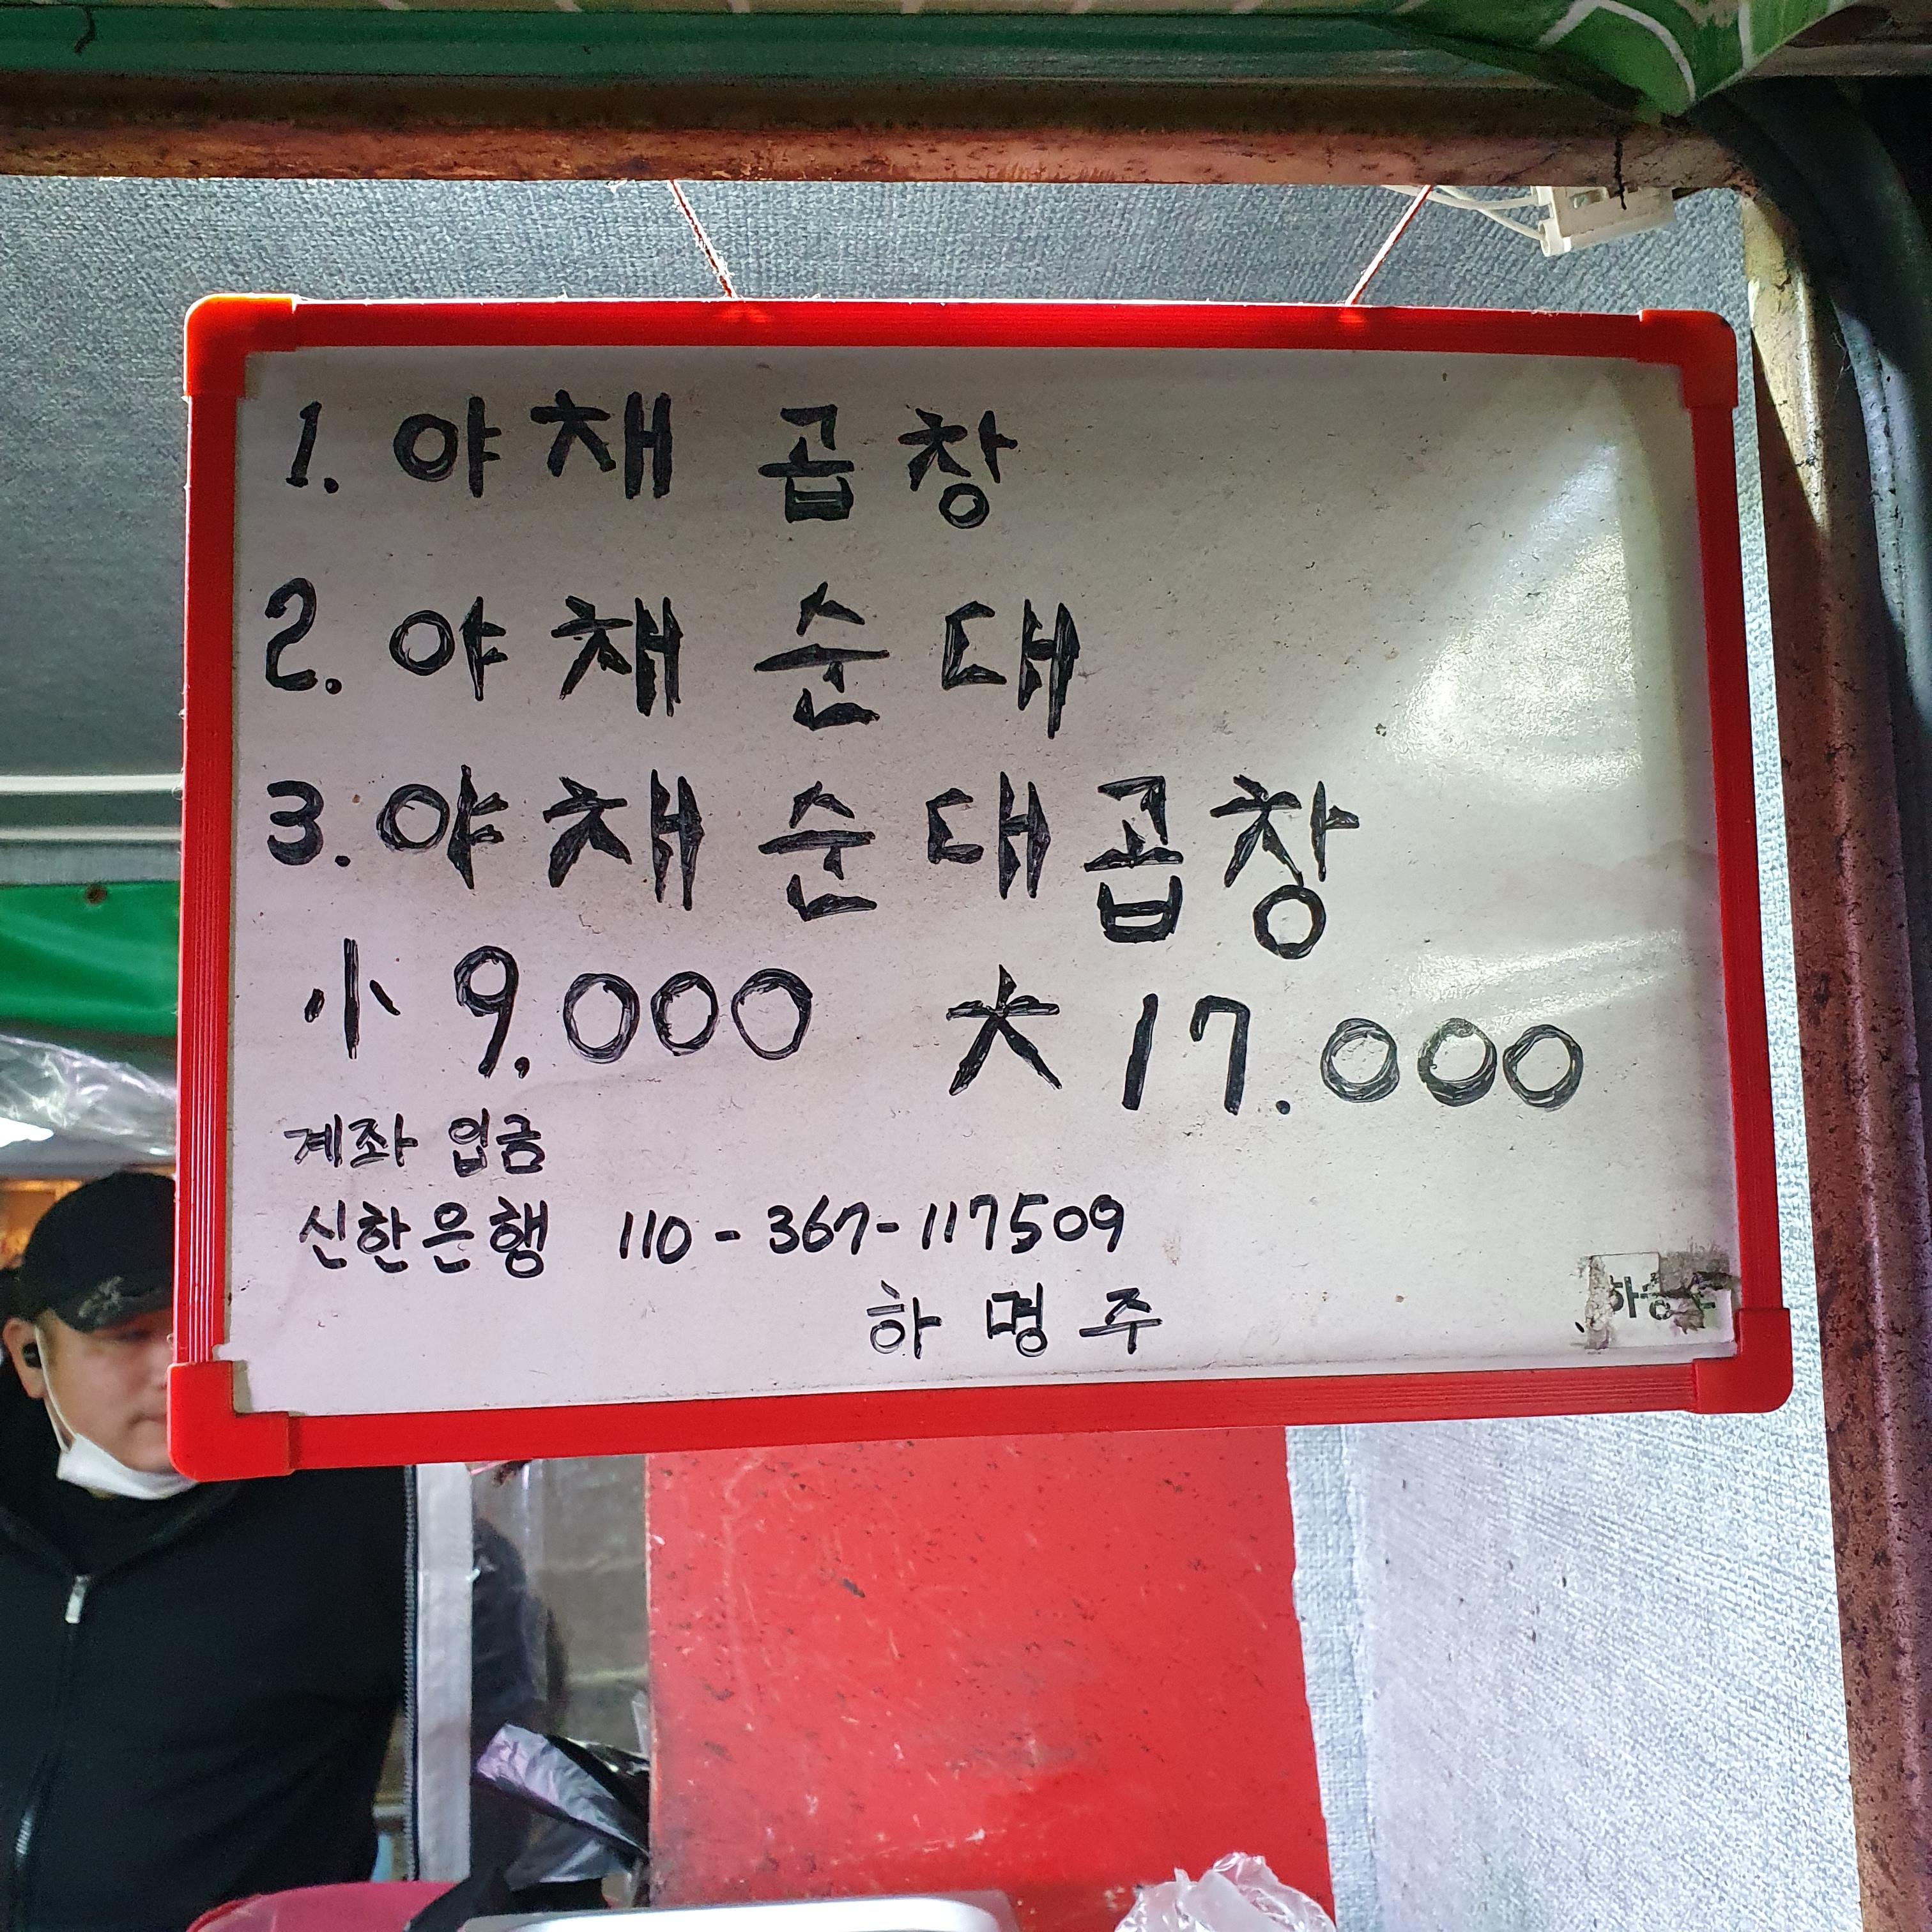 1. 야채 곱창
2. 야채 순대
3. 야채 순대곱창
小 9.000 大 17.000
계좌 입금
신한은행 110-367-117509
하명주